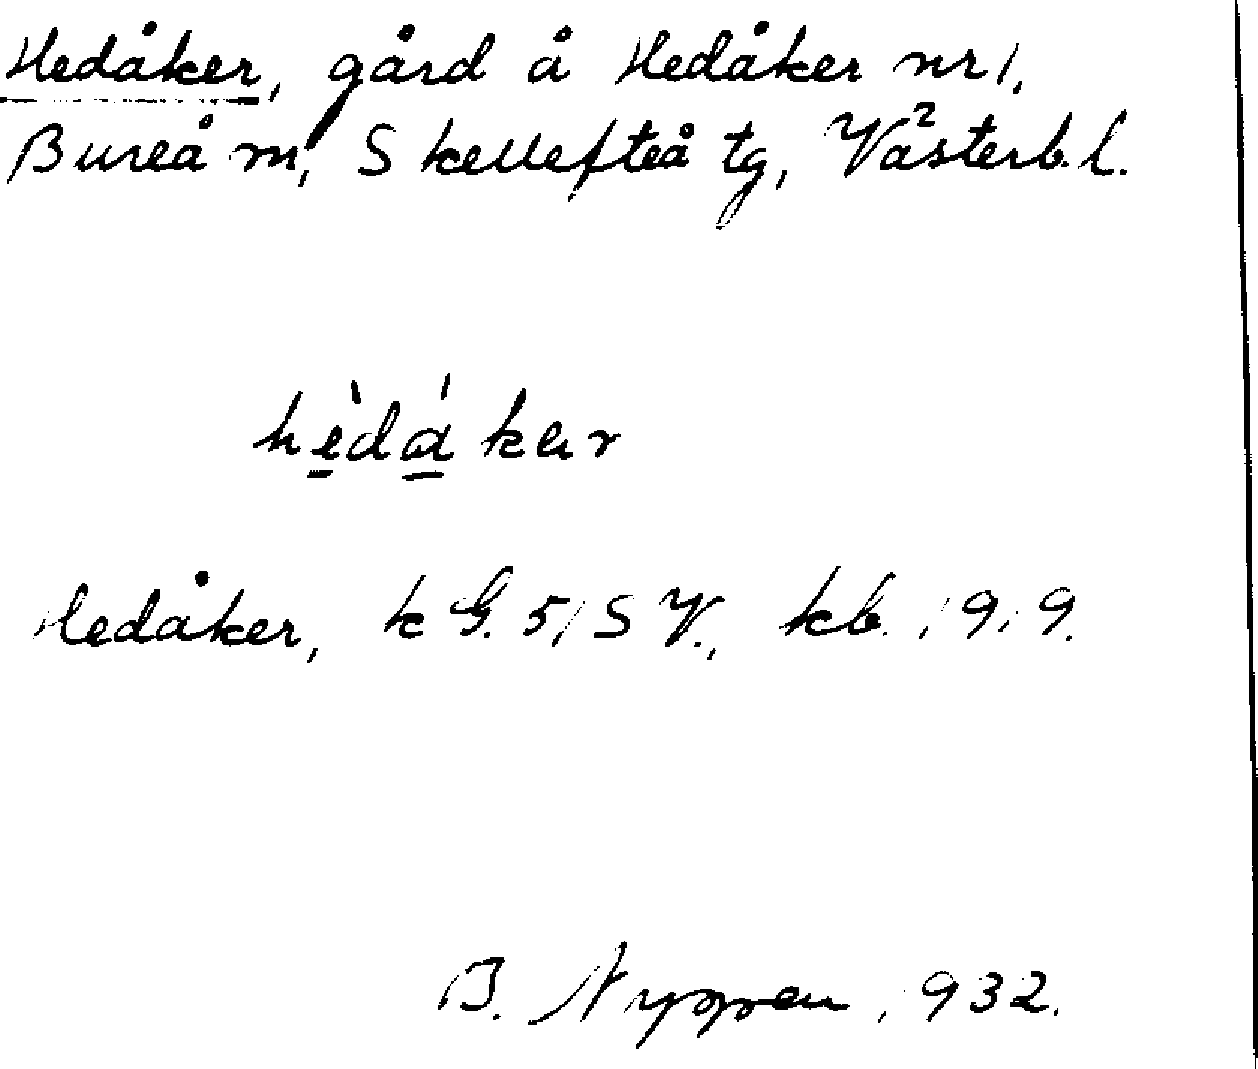 Hedåker, gård å Hedåker nr 1,
Bureå m, Skellefteå tg, Västerb. l.
hèdákær
Hedåker, k G. 51 S V., kb. 1919.
B. Nyppen, 1932.